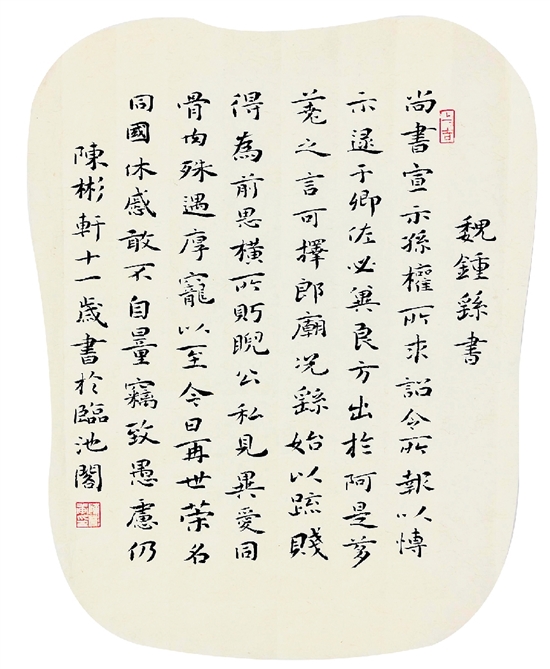 魏鍾繇書
尚書宣示孫權所求詔令所報以博
示逮于卿佐必冀良方出於阿是芻
蕘之言可擇郎廟況繇始以疏賤
得為前恩橫所眄睨公私見異愛同
骨肉殊遇厚寵以至今日再世榮名
同國休慼敢不自量竊致愚慮仍
陳彬軒十一歲書於臨池閣